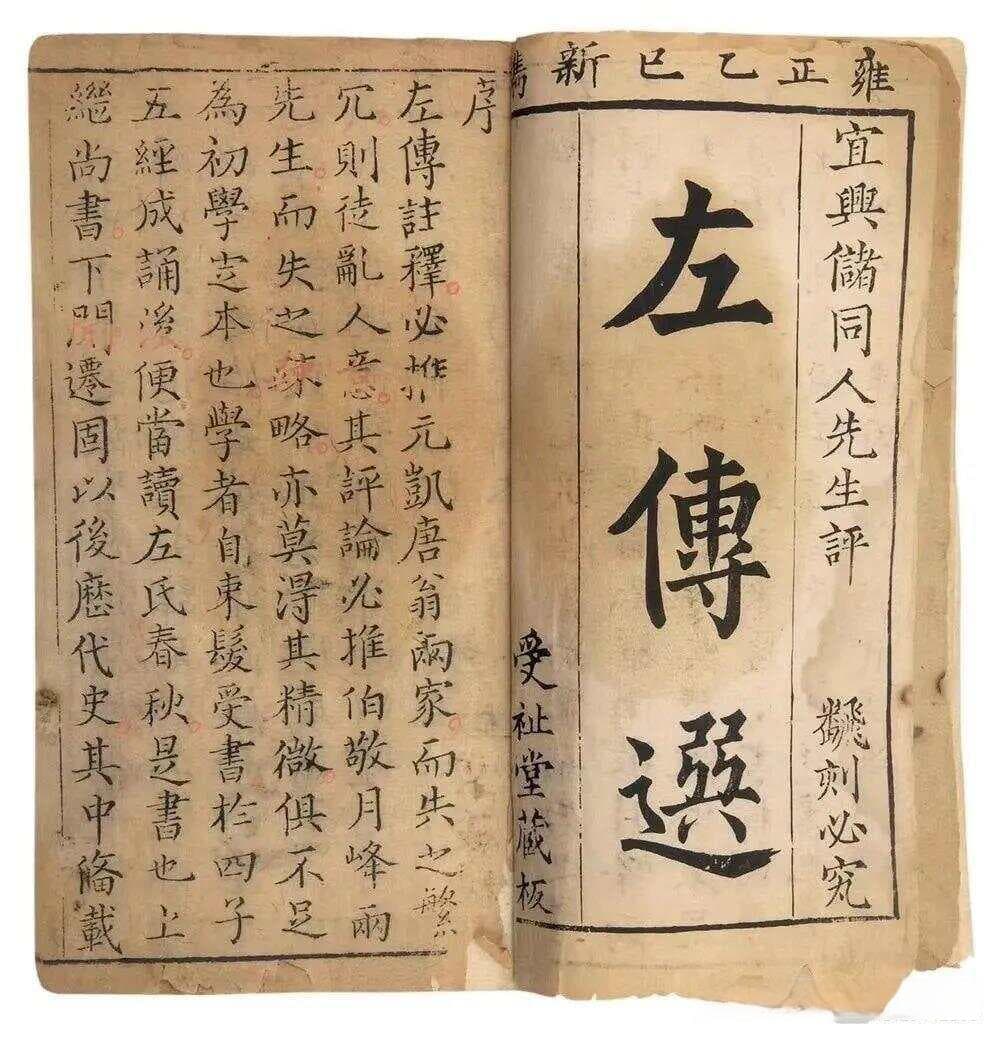 雍正乙巳新鐫
宜興儲同人先生評 飜刻必究
左傳選
受祉堂藏板
序
左傳註釋必推元凱唐翁兩家而失之繁
冗則徒亂人意其評論必推伯敬月峰兩
先生而失之疎略亦莫淂其精微俱不足
為初學定本也學者自束髮受書於四子
五經成誦後便當讀左氏春秋是書也上
繼尚書下開遷固以後歷代史其中備載